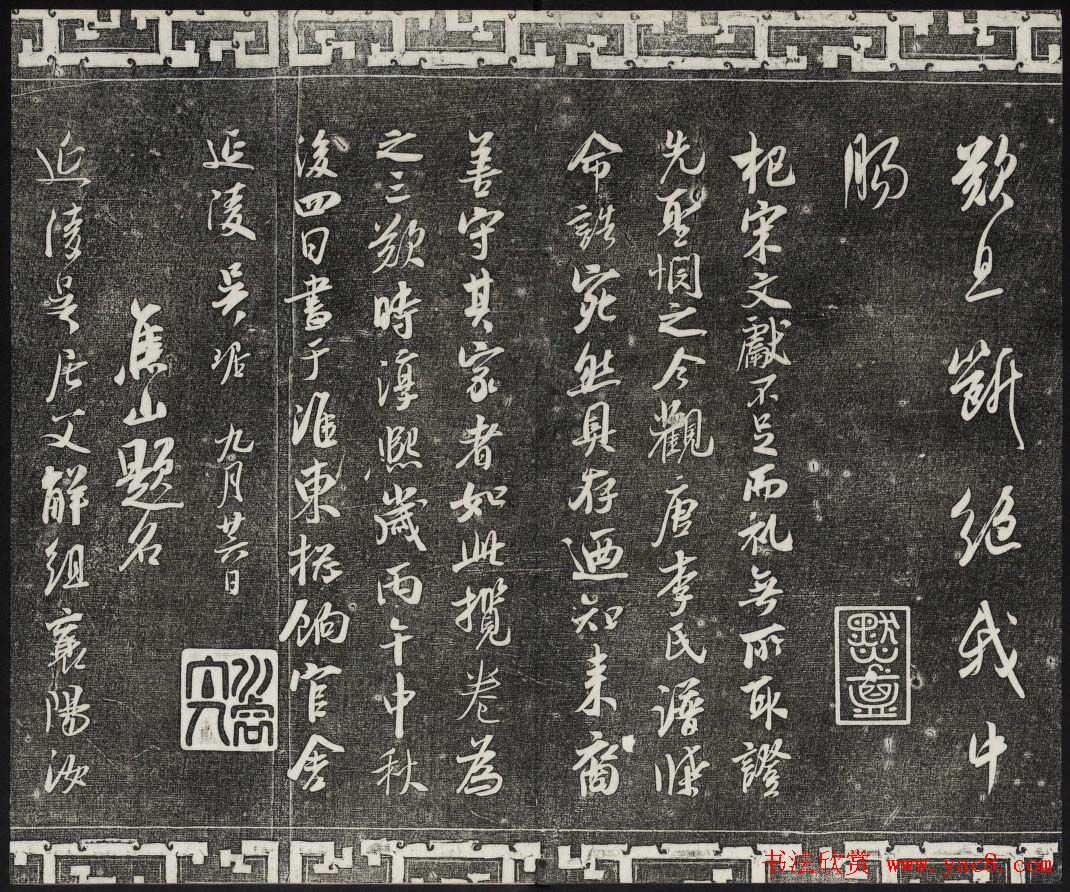 歎息斷絕我中
腸
杞宋文獻不足而礼無所取證
先聖憫之今觀唐李氏譜牒
命誥宛然具存迺知来裔
善守其家者如此攬卷為
之三歎時淳熙歲丙午中秋
後四日書于淮東捴餉官舍
延陵吴琚 九月廿六日
焦山題名
延陵吴居父解組襄陽汝
默盦
书法欣赏 www.yac8.com